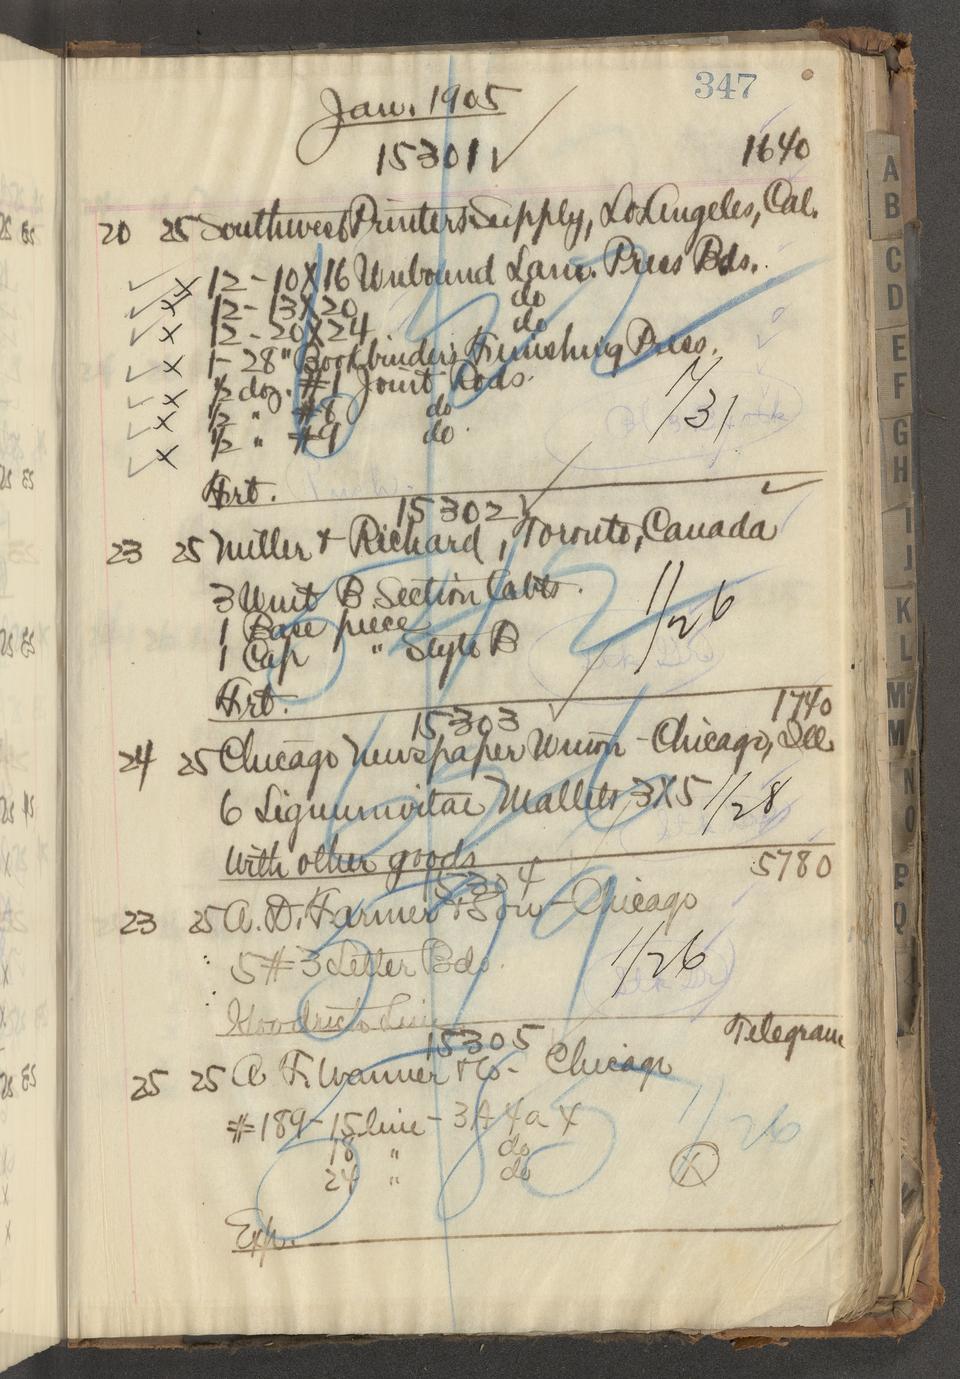 347
Jan. 1905
15301 1640
20 25 Southwest Printers Supply, Los Angeles, Cal.
12 - 10X16 Unbound Lam. Press Bds.
12 - 13X20 do
12 - 20X24 do
1 - 28" Bookbinders Finishing Press.
½ doz. #1 Joint Rods.
½ " #8 do
½ " #9 do
1/31
Frt.
15302
23 25 Miller & Richard, Toronto, Canada
3 Unit B Section Cabts.
1 Base piece
1 Cap " Style B
1/26
Frt.
15303 1740
24 25 Chicago Newspaper Union - Chicago, Ill
6 Lignumvitae Mallets 3X5 1/28
With other goods
15304 5780
23 25 A. D. Farmer & Son - Chicago
5 #3 Letter Bds. 1/26
Goodrich Line
15305 Telegram
25 25 A. F. Wanner & Co - Chicago
#189 - 15 line - 3A 4a X 1/26
18 " do
24 " do X
Exp.
A
B
C
D
E
F
G
H
I
J
K
L
M
M
N
O
P
Q